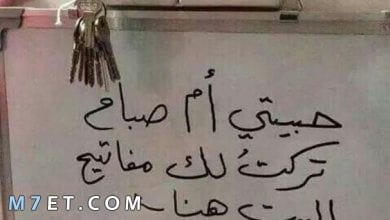 حبيبتي أم صباح
تركتُ لك مفاتيح
البيت هنا
M7ET.COM